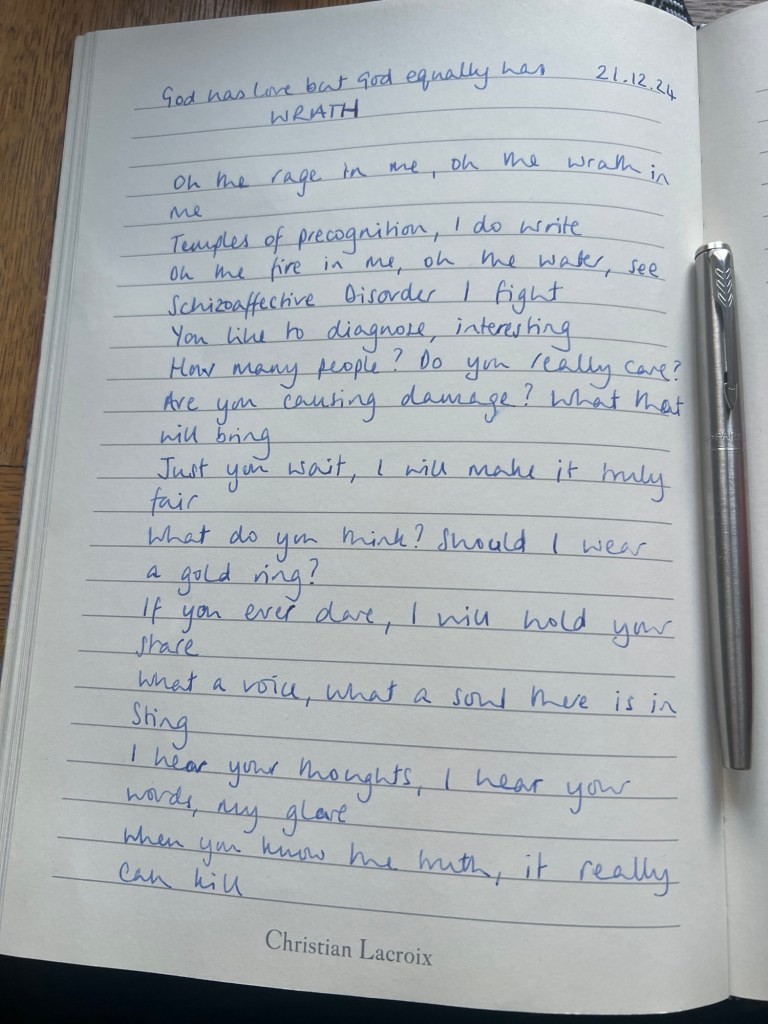 God has love but God equally has 21.12.24
WRATH
Oh the rage in me, oh the wrath in
me
Temples of precognition, I do write
Oh the fire in me, oh the water, see
Schizoaffective Disorder I fight
You like to diagnose, interesting
How many people? Do you really care?
Are you causing damage? What that
will bring
Just you wait, I will make it truly
fair
What do you think? Should I wear
a gold ring?
If you ever dare, I will hold your
stare
What a voice, what a soul there is in
Sting
I hear your thoughts, I hear your
words, my glare
When you know the truth, it really
can kill
Christian Lacroix